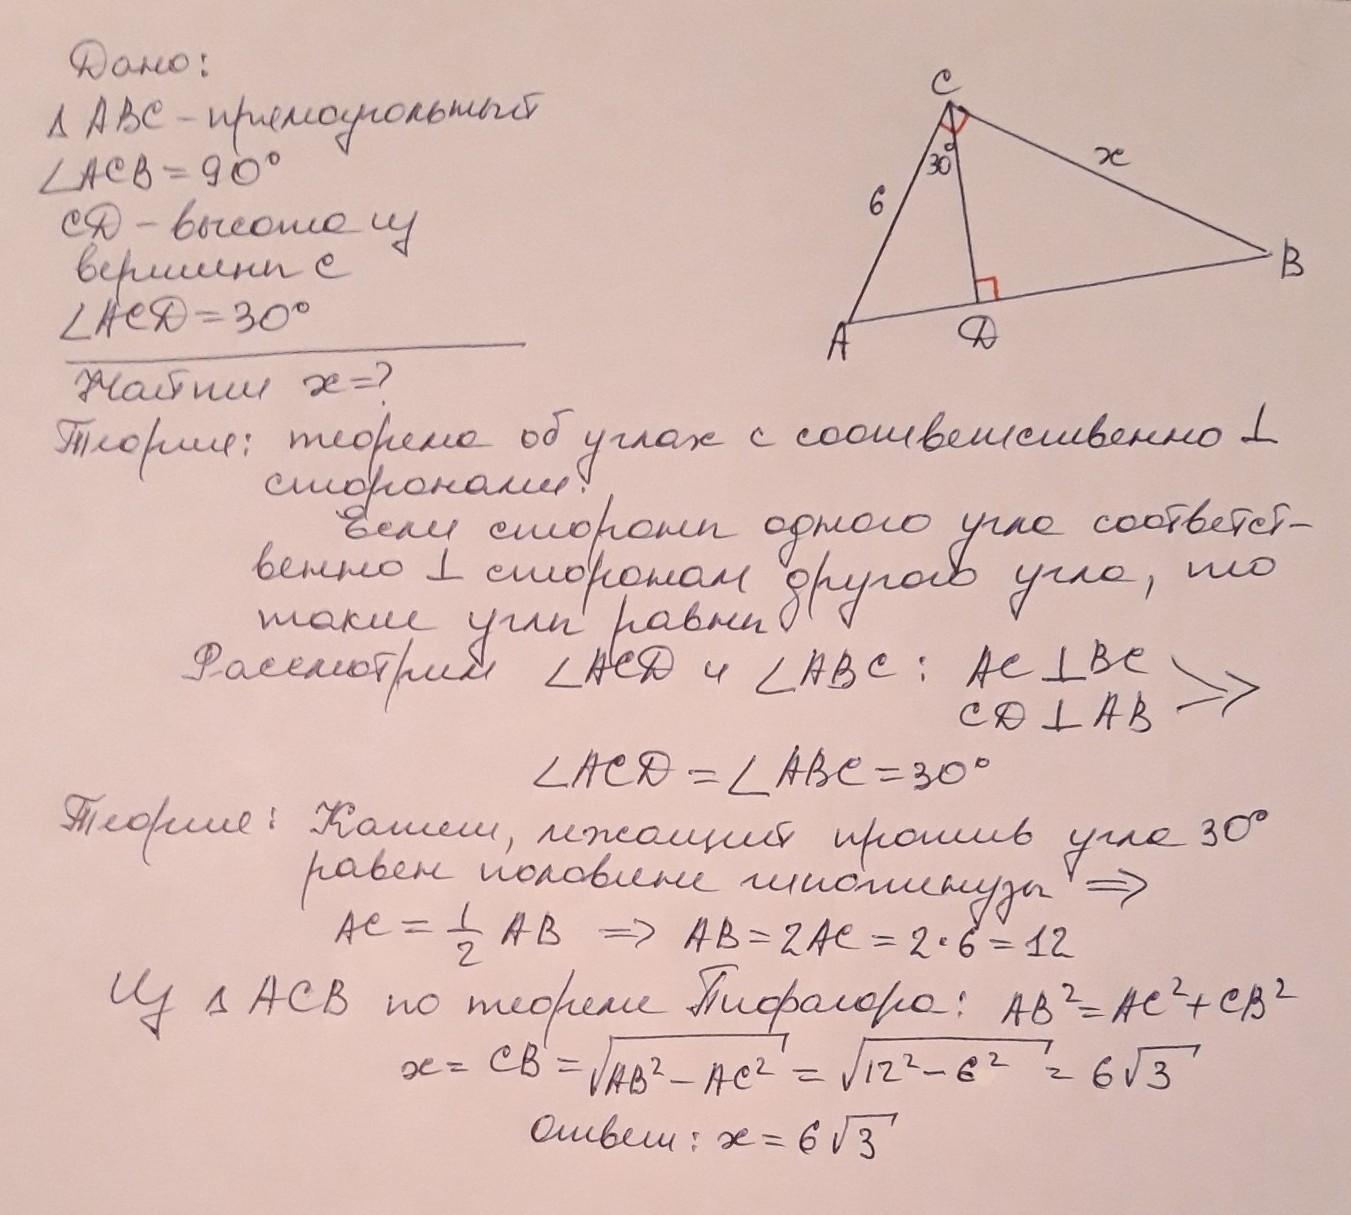 Дано:
Δ ABC - прямоугольный
∠ACB = 90°
CD - высота из
вершины C
∠ACD = 30°
Найти x = ?
C
30°
6
x
A
D
B
Теория: теорема об углах с соответственно ⊥
сторонами:
Если стороны одного угла соответст-
венно ⊥ сторонам другого угла, то
такие углы равны
Рассмотрим ∠ACD и ∠ABC : AC ⊥ BC
CD ⊥ AB =>
∠ACD = ∠ABC = 30°
Теория: Катет, лежащий против угла 30°
равен половине гипотенузы =>
AC = 1/2 AB => AB = 2AC = 2·6 = 12
Из Δ ACB по теореме Пифагора: AB² = AC² + CB²
x = CB = √(AB² - AC²) = √(12² - 6²) = 6√3
Ответ: x = 6√3